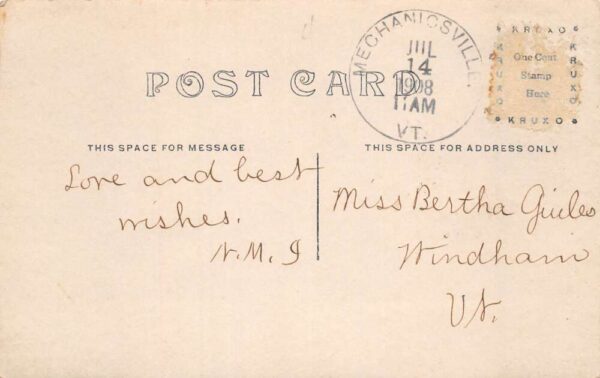 POST CARD
MECHANICSVILLE.
JUL
14
1908
11AM
VT.
KRUXO
KRUXO
One Cent
Stamp
Here
KRUXO
KRUXO
THIS SPACE FOR MESSAGE
Love and best
wishes.
N.M.J
THIS SPACE FOR ADDRESS ONLY
Miss Bertha Guiles
Windham
Vt.